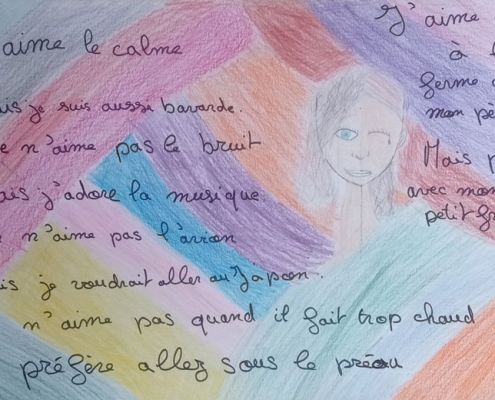 aime le calme
is je suis aussi bavarde.
e n'aime pas le bruit
ais j'adore la musique
e n'aime pas l'avion
is je voudrait aller au Japon.
n'aime pas quand il fait trop chaud
préfère allez sous le préau
J'aime
à l
ferme
mon pe
Mais p
avec mon
petit-f